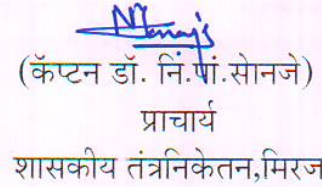 (कॅप्टन डॉ. नि.पां.सोनजे)
प्राचार्य
शासकीय तंत्रनिकेतन,मिरज